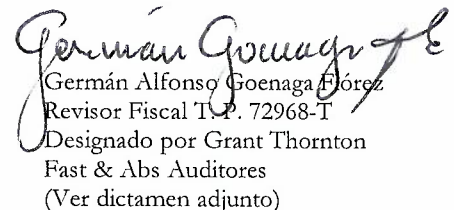 Germán Goenaga F
Germán Alfonso Goenaga Flórez
Revisor Fiscal T. P. 72968-T
Designado por Grant Thornton
Fast & Abs Auditores
(Ver dictamen adjunto)